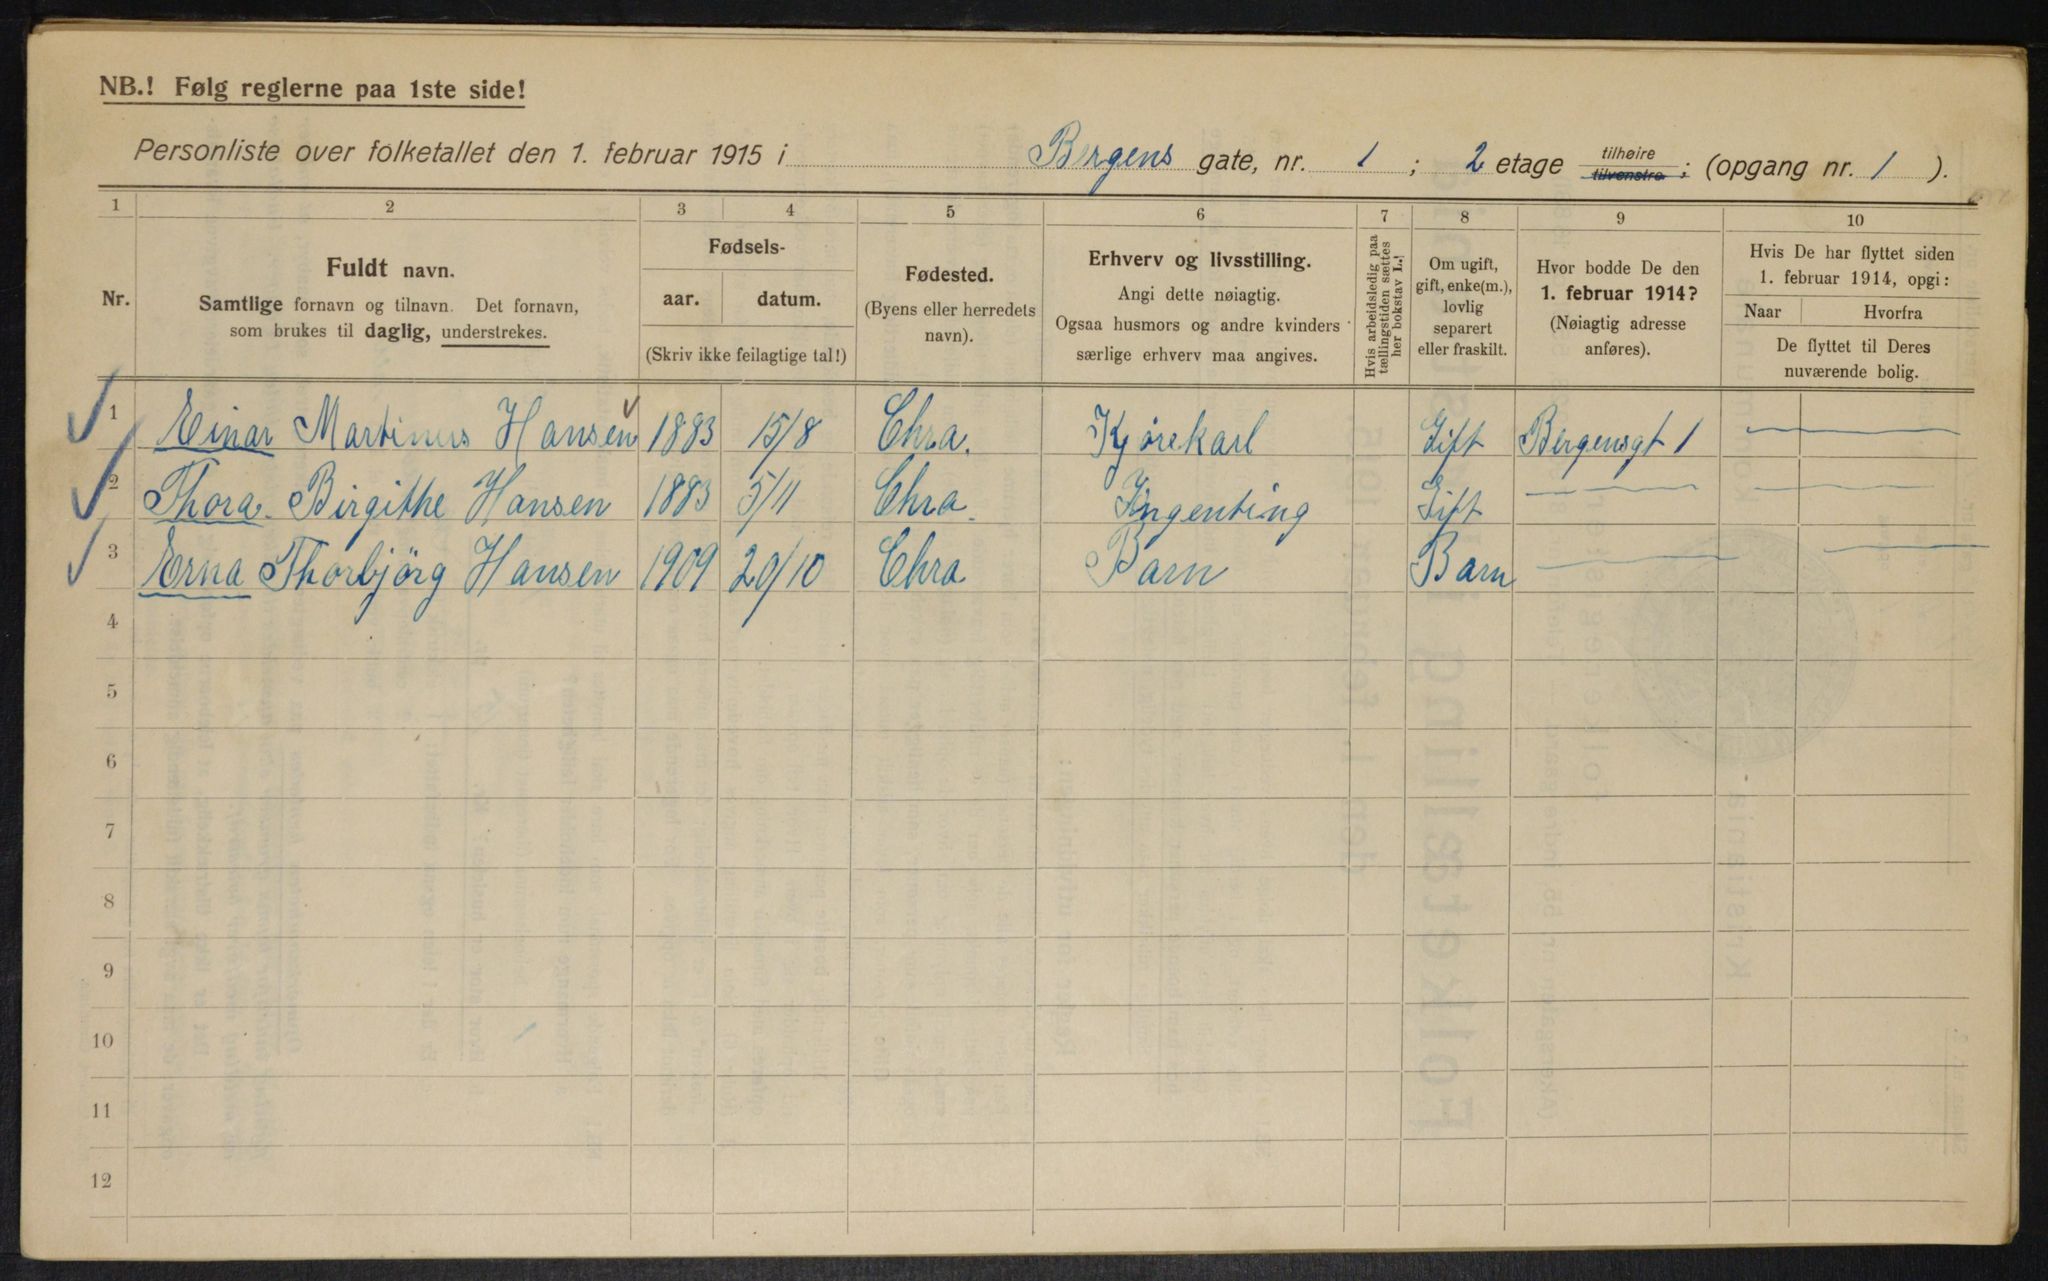 NB.! Følg reglerne paa 1ste side!
Personliste over folketallet den 1. februar 1915 i Bergens gate, nr. 1 ; 2 etage tilhøire tilvenstre ; (opgang nr. 1 ).
1 2 3 4 5 6 7 8 9 10
Nr.
Fuldt navn.
Samtlige fornavn og tilnavn. Det fornavn,
som brukes til daglig, understrekes.
Fødsels-
aar. datum.
(Skriv ikke feilagtige tal!)
Fødested.
(Byens eller herredets
navn).
Erhverv og livsstilling.
Angi dette nøiagtig.
Ogsaa husmors og andre kvinders
særlige erhverv maa angives.
Hvis arbeidsledig paa
tællingstiden sættes
her bokstav L.!
Om ugift,
gift, enke(m.),
lovlig
separert
eller fraskilt.
Hvor bodde De den
1. februar 1914?
(Nøiagtig adresse
anføres).
Hvis De har flyttet siden
1. februar 1914, opgi:
Naar Hvorfra
De flyttet til Deres
nuværende bolig.
1 Einar Martinus Hansen 1883 15/8 Chra. Kjørekarl Gift Bergensgt 1
2 Thora Birgithe Hansen 1883 5/11 Chra. Ingenting Gift
3 Erna Thorbjörg Hansen 1909 20/10 Chra Barn Barn
4
5
6
7
8
9
10
11
12